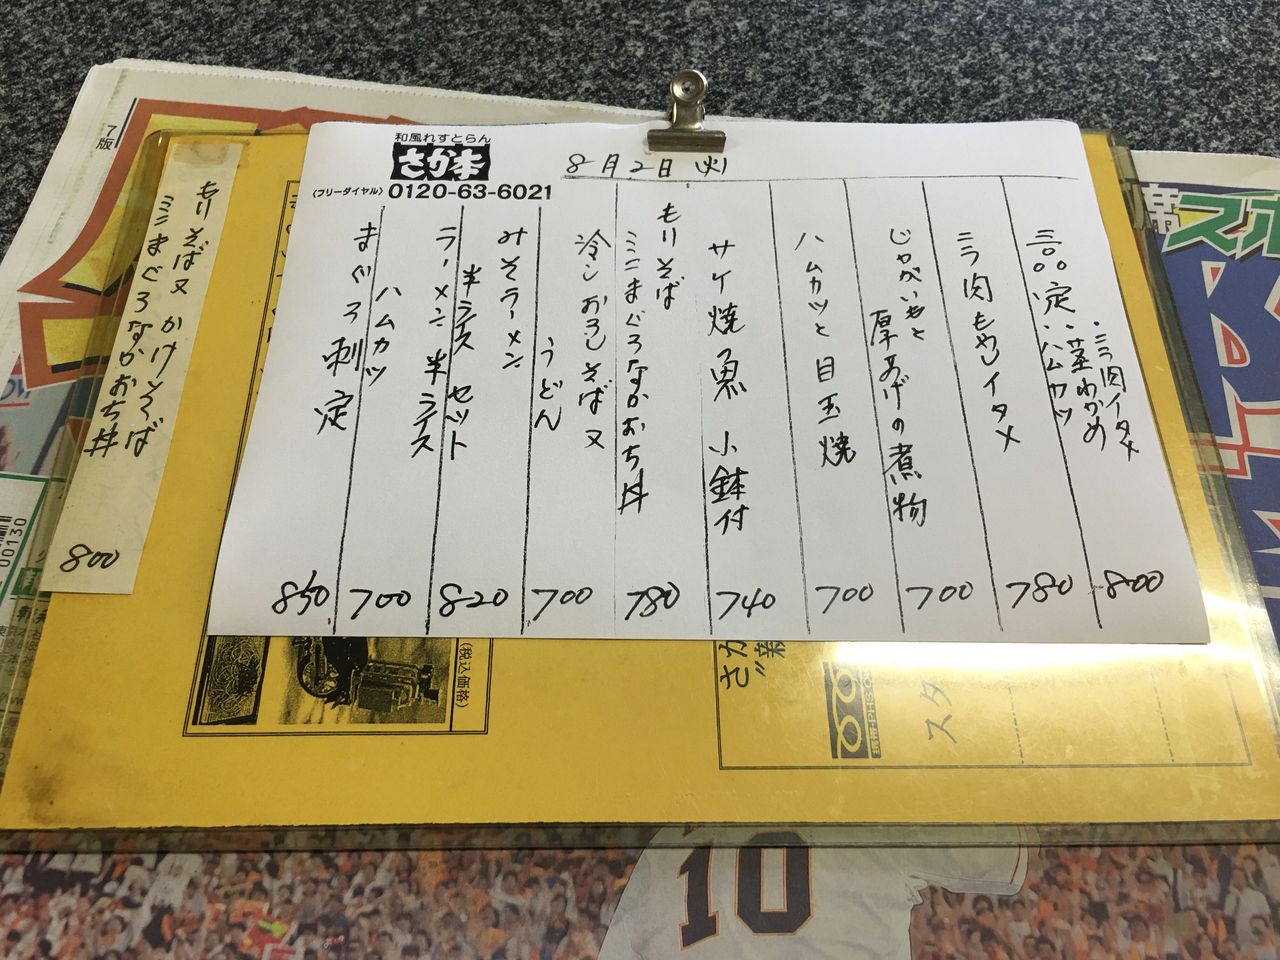 和風れすとらん
さか本
〈フリーダイヤル〉0120-63-6021
8月2日(火)
三〇〇定・ニラ肉イタメ
・茎わかめ
・ハムカツ
800
ニラ肉もやしイタメ
780
じゃがいもと
厚あげの煮物
700
ハムカツと目玉焼
700
サケ焼魚 小鉢付
740
もりそば
ミニまぐろなかおち丼
780
冷しおろしそば又
うどん
700
みそラーメン
半ライスセット
820
ラーメン半ライス
ハムカツ
700
まぐろ刺定
850
もりそば又かけそば
ミニまぐろなかおち丼
800
(税込価格)
スタ
10
7版
席
スポ
00130